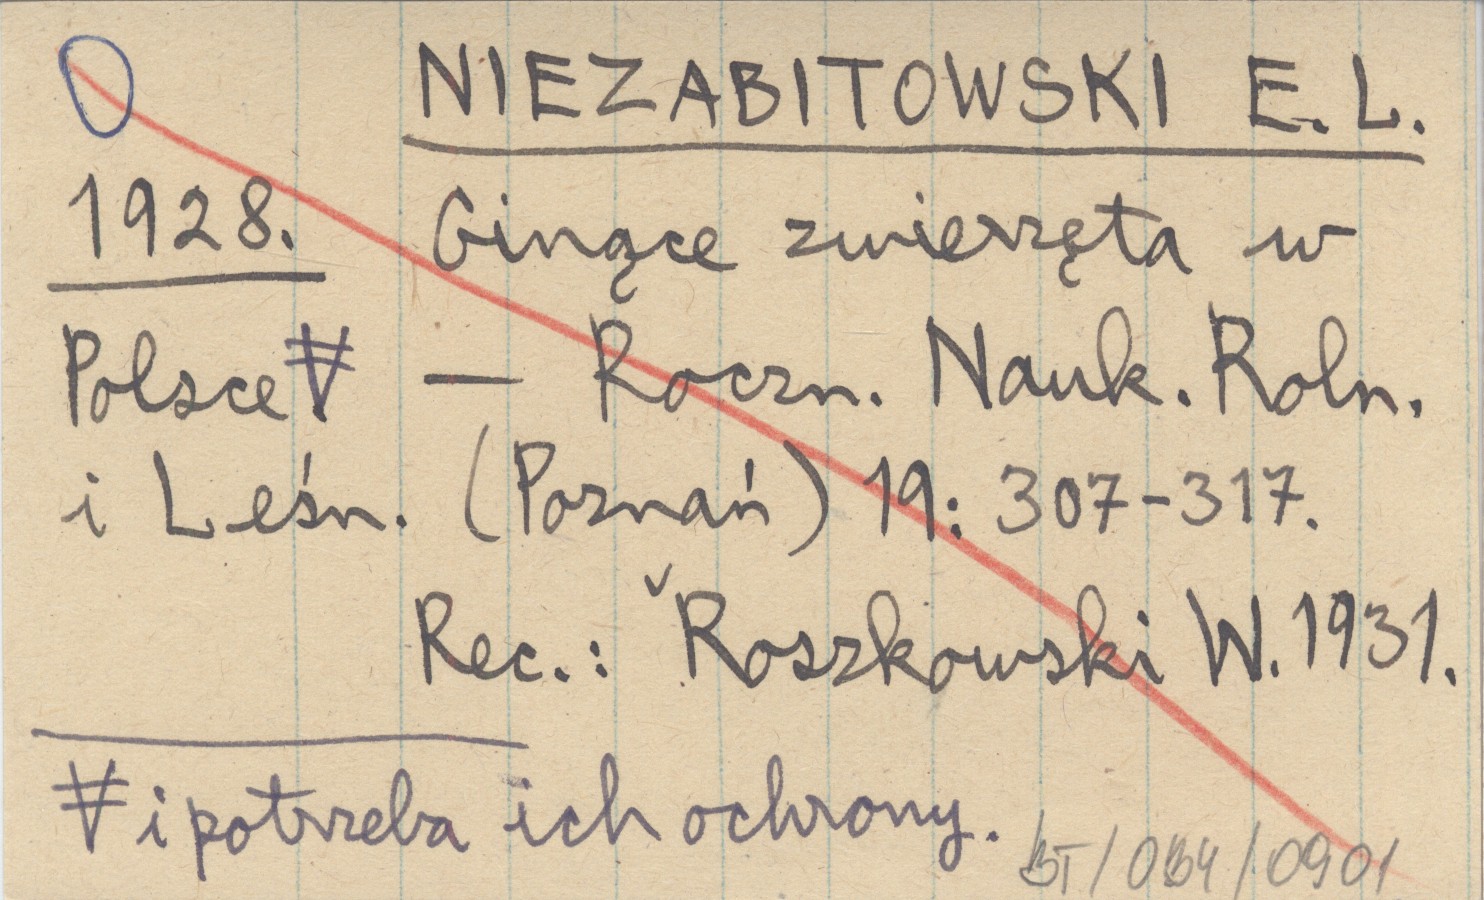 NIEZABITOWSKI E. L.
1928. Ginące zwierzęta w
Polsce — Roczn. Nauk. Roln.
i Leśn. (Poznań) 19: 307-317.
Rec.: Roszkowski W. 1931.
i potrzeba ich ochrony.
BT/034/0901